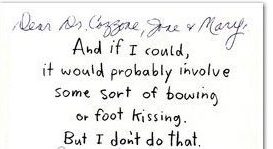 Dear Drs. Cozzone, Jose & Mary,
And if I could,
it would probably involve
some sort of bowing
or foot kissing.
But I don't do that.